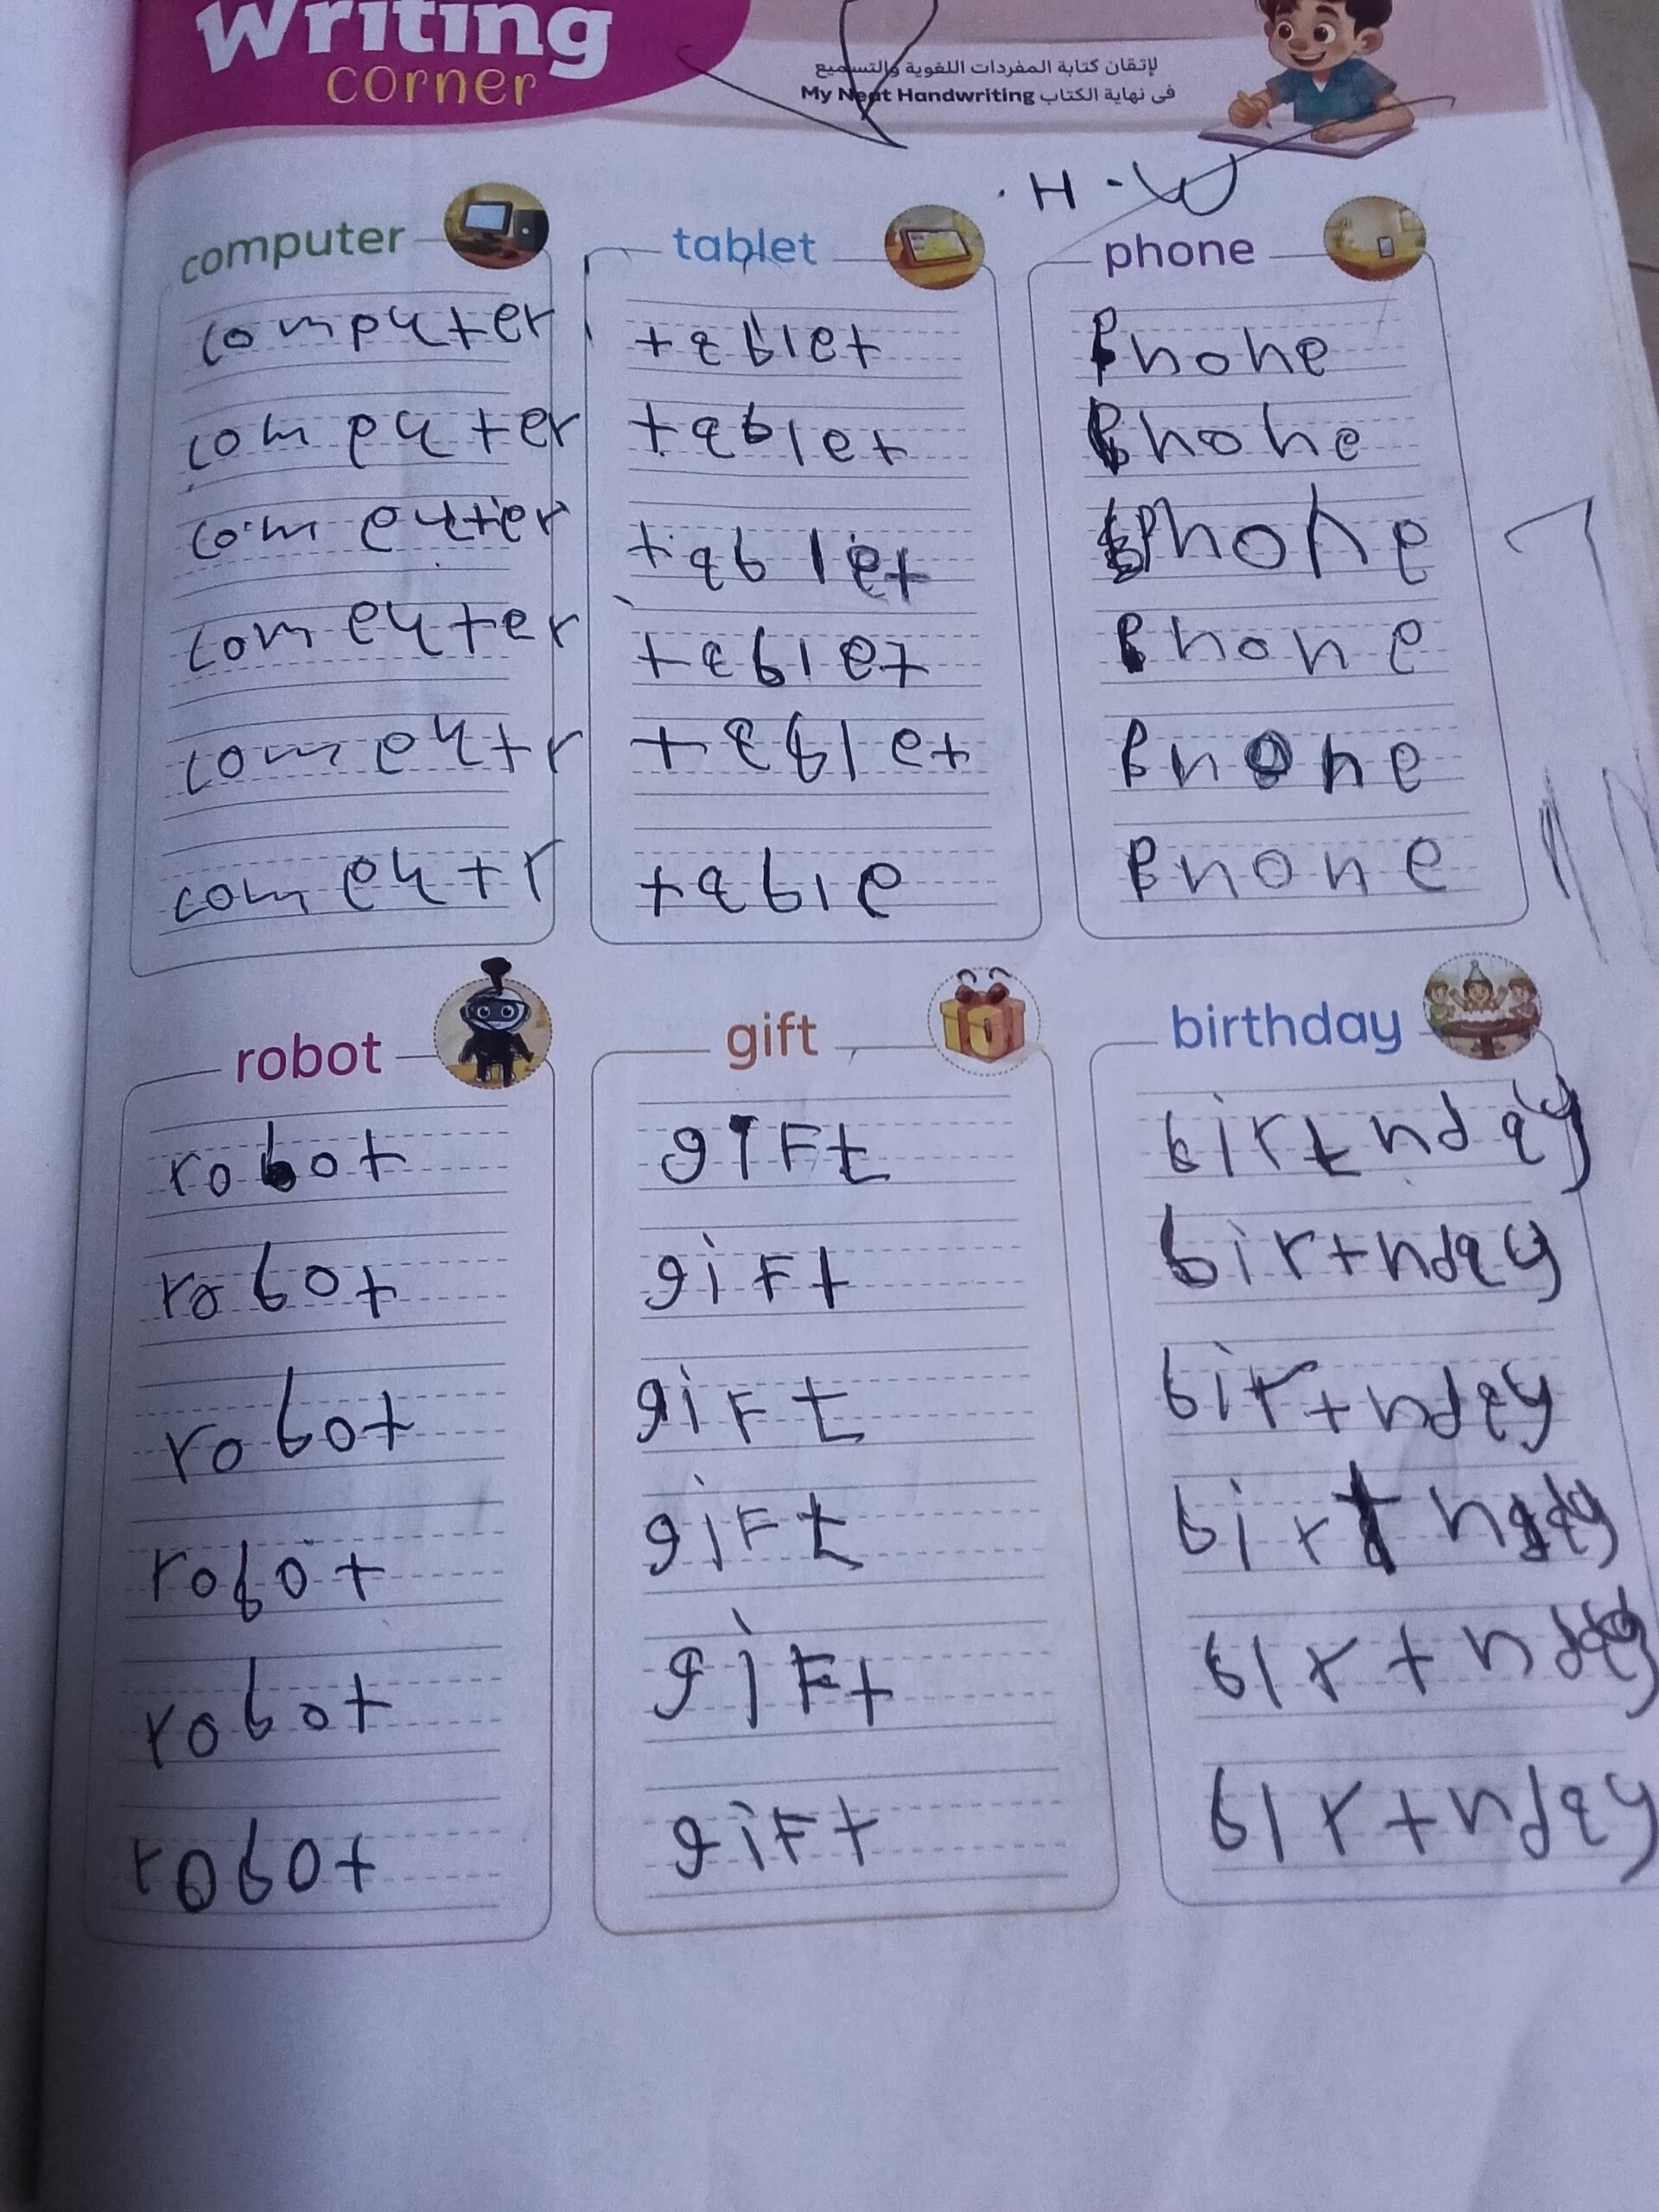 Writing
corner
لإتقان كتابة المفردات اللغوية والتسميع
فى نهاية الكتاب My Neat Handwriting
H.W
computer
computer
computer
computer
computer
computr
computr
tablet
tablet
tablet
tablet
tablet
tablet
table
phone
phone
phone
phone
phone
phone
phone
robot
robot
robot
robot
robot
robot
robot
gift
giFt
giFt
giFt
giFt
giFt
giFt
birthday
birthday
birthday
birthday
birthday
birthday
birthday